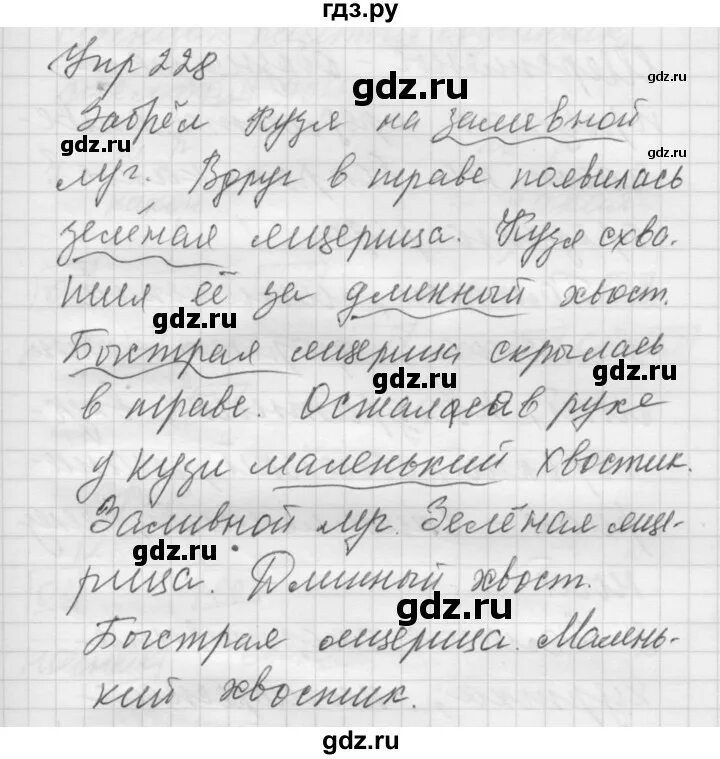 гдз.ру
Упр 228
Забрёл Кузя на заливной
луг. Вдруг в траве появилась
зелёная ящерица. Кузя схва-
тил её за длинный хвост.
Быстрая ящерица скрылась
в траве. Осталась в руке
у Кузи маленький хвостик.
Заливной луг. Зелёная яще-
рица. Длинный хвост.
Быстрая ящерица. Малень-
кий хвостик.
gdz.ru
gdz.ru
gdz.ru
gdz.ru
gdz.ru
gdz.ru
gdz.ru
gdz.ru
gdz.ru
gdz.ru
gdz.ru